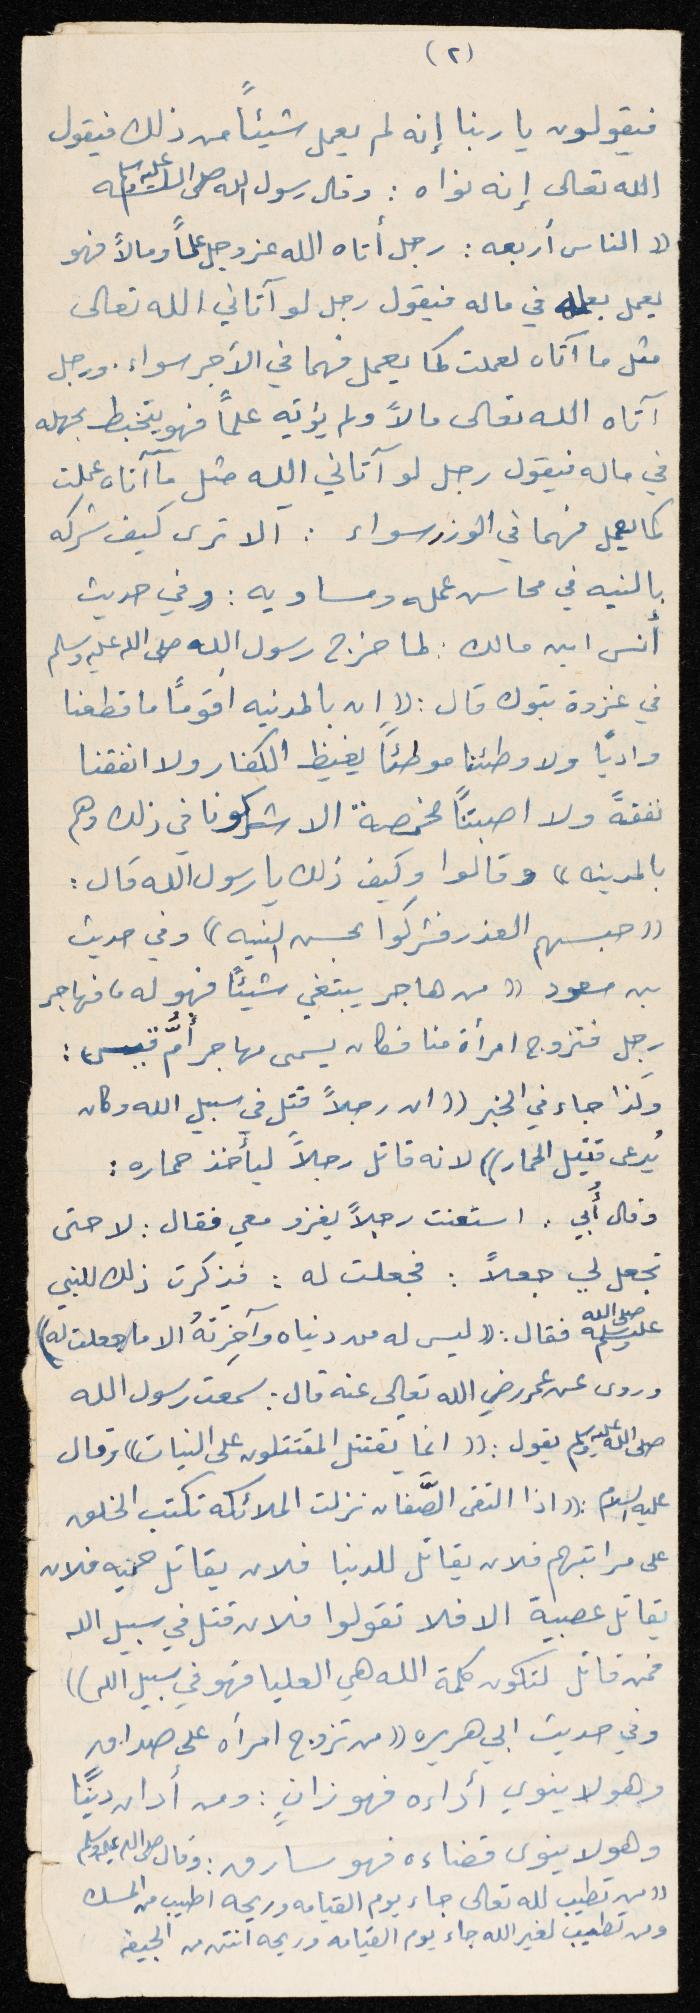 (٢)
فيقولون يا ربنا إنه لم يعمل شيئاً من ذلك فيقول
الله تعالى إنه نواه : وقال رسول الله صلى الله عليه وسلم
« الناس أربعه : رجل أتاه الله عز وجل علماً ومالاً فهو
يعمل بعلمه في ماله فيقول رجل لو آتاني الله تعالى
مثل ما آتاه لعملت كما يعمل فهما في الأجر سواء . ورجل
آتاه الله تعالى مالاً ولم يؤتيه علماً فهو يتخبط بجهله
في ماله فيقول رجل لو آتاني الله مثل ما آتاه عملت
كما يعمل فهما في الوزر سواء : ألا ترى كيف شركه
بالنيه في محاسن عمله ومساويه : وفي حديث
أنس ابن مالك : لما خرج رسول الله صلى الله عليه وسلم
في غزوة تبوك قال : لا إن بالمدنيه اقوماً ما قطعنا
وادياً ولا وطئنا موطئاً يغيظ الكفار ولا انفقنا
نفقةً ولا اصبتناً مخمصة الا شركونا في ذلك وهم
بالمدينه » وقالوا وكيف ذلك يا رسول الله قال :
« حبسهم العذر فشركوا بحسن النيه » وفي حديث
بن مسعود « من هاجر يبتغي شيئاً فهو له » فهاجر
رجل فتزوج امرأة منا فكان يسمى مهاجر أُمّ قيس :
وكذا جاء في الخبر « ان رجلاً قتل في سبيل الله وكان
يُدعى قتيل الحمار » لانه قاتل رجلاً ليأخذ حماره :
وقال أُبي : استعنت رجلاً يغزو معي فقال : لا حتى
تجعل لي جعلاً : فجعلت له : فذكرت ذلك للنبي
صلى الله عليه وسلم فقال : « ليس له من دنياه وآخِرتهُ الا ما جعلت له »
وروى عن عمر رضي الله تعالى عنه قال : سمعت رسول الله
صلى الله عليه وسلم يقول : « انما يقتتل المقتتلون على النيات » وقال
عليه السلام : « اذا التقى الصَّفان نزلت الملائكه تكتب الخلق
على مراتبهم فلان يقاتل للدنيا فلان يقاتل حميه فلان
يقاتل عصبية الا فلا تقولوا فلان قتل في سبيل الله
فمن قاتل لتكون كلمة الله هي العليا فهو في سبيل الله »
وفي حديث ابي هريره « من تزوج امرأه على صداق
وهو لا ينوي أداءه فهو زانٍ : ومن أدان ديناً
وهو لا ينوى قضاءه فهو سارق : وقال صلى الله عليه وسلم
« من تطيب لله تعالى جاء يوم القيامه وريحه اطيب من المسك
ومن تطيب لغير الله جاء يوم القيامه وريحه انتن من الجيفه